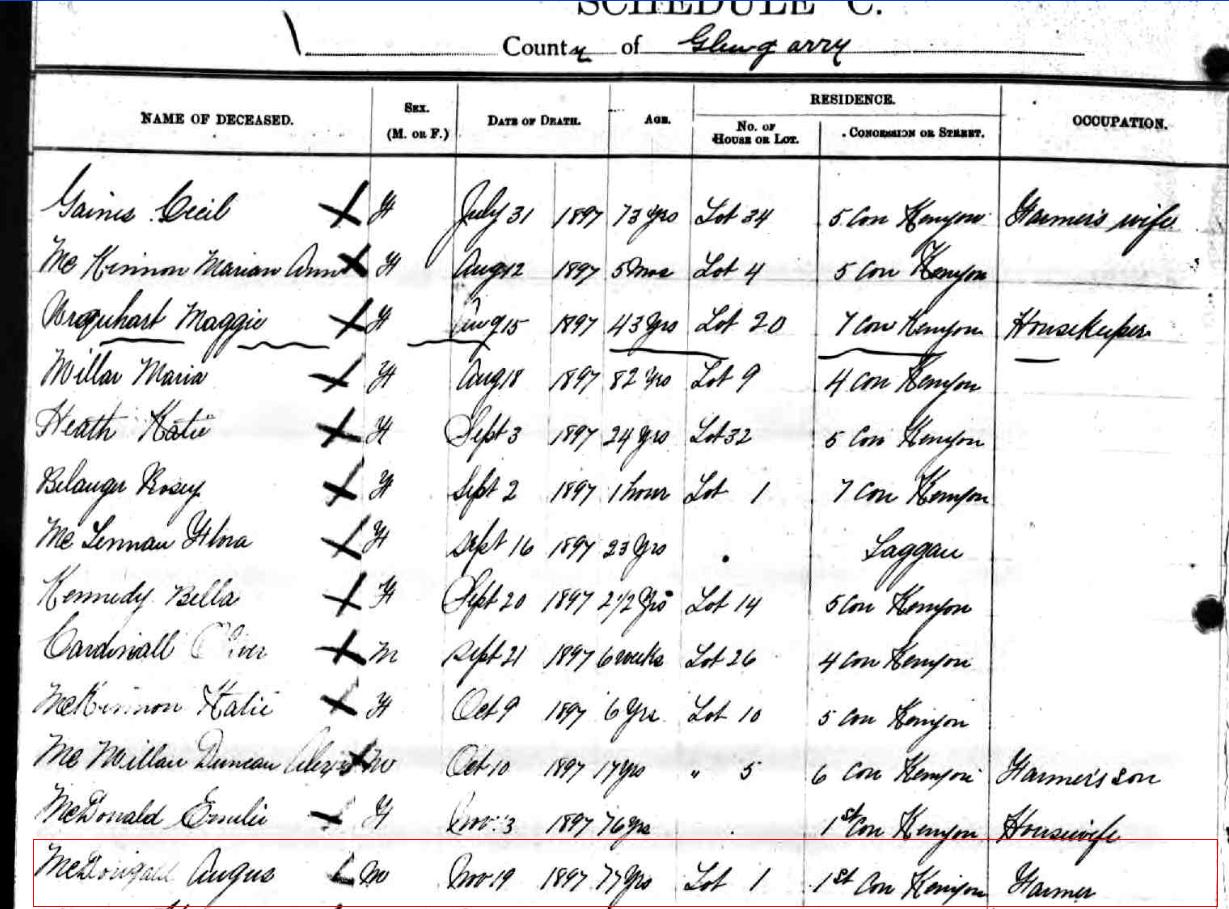 SCHEDULE C.
County of Glengarry
NAME OF DECEASED. SEX. (M. OR F.) DATE OF DEATH. AGE. RESIDENCE. No. OF HOUSE OR LOT. CONCESSION OR STREET. OCCUPATION.
Gaines Cecil F July 31 1897 73 yrs Lot 34 5 Con Kenyon Farmer's wife
Mc Kinnon Marian Ann F Aug 12 1897 5 Mos Lot 4 5 Con Kenyon
Urquhart Maggie F Aug 15 1897 43 Yrs Lot 20 7 Con Kenyon Housekeeper
Millar Maria F Aug 18 1897 82 Yrs Lot 9 4 Con Kenyon
Heath Katie F Sept 3 1897 24 Yrs Lot 32 5 Con Kenyon
Belanger Rosey F Sept 2 1897 1 hour Lot 1 7 Con Kenyon
Mc Lennan Flora F Sept 16 1897 23 Yrs Laggan
Kennedy Bella F Sept 20 1897 2 1/2 Yrs Lot 14 5 Con Kenyon
Cardinall Oliver M Sept 21 1897 6 weeks Lot 26 4 Con Kenyon
McKinnon Katie F Oct 9 1897 6 Yrs Lot 10 5 Con Kenyon
Mc Millan Duncan M Oct 10 1897 17 yrs " 5 6 Con Kenyon Farmer's son
McDonald Emilie F Nov 3 1897 76 yrs 1st Con Kenyon Housewife
McDougall Angus M Nov 19 1897 77 Yrs Lot 1 1st Con Kenyon Farmer